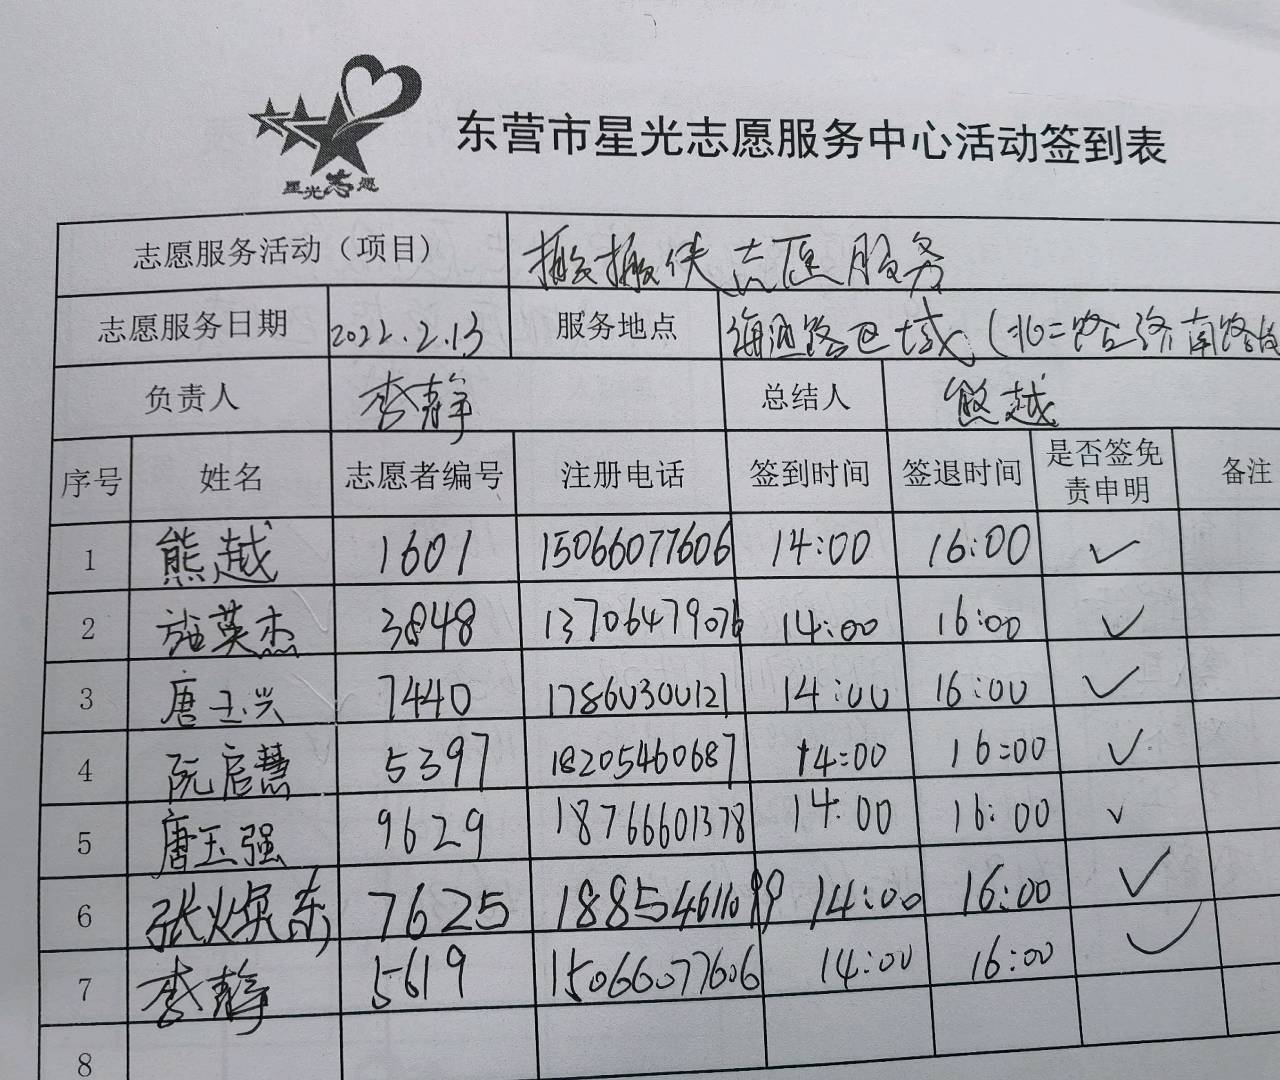 星光志愿
东营市星光志愿服务中心活动签到表
志愿服务活动（项目） 搬搬侠志愿服务
志愿服务日期 2022.2.13 服务地点 海通路区域（北二路至济南路
负责人 李静 总结人 熊越
序号 姓名 志愿者编号 注册电话 签到时间 签退时间 是否签免责申明 备注
1 熊越 1601 15066077606 14:00 16:00 ✓
2 施英杰 3848 13706479076 14:00 16:00 ✓
3 唐玉兴 7440 17860300121 14:00 16:00 ✓
4 阮启慧 5397 18205460687 14:00 16:00 ✓
5 唐玉强 9629 18766601378 14:00 16:00 ✓
6 张焕东 7625 18854611099 14:00 16:00 ✓
7 李静 5619 15066077606 14:00 16:00 ✓
8